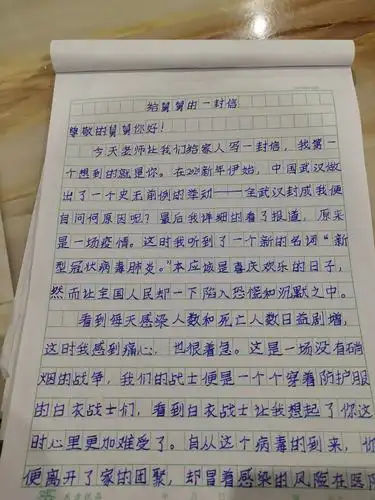 给舅舅的一封信
尊敬的舅舅你好！
今天老师让我们给家人写一封信，我第一
个想到的就是你。在2020新年伊始，中国武汉做
出了一个史无前例的举动——全武汉封城我便
自问何原因呢？最后我详细的看了报道，原来
是一场疫情。这时我听到了一个新的名词“新
型冠状病毒肺炎。”本应该是喜庆欢乐的日子，
然而让全国人民却一下陷入恐慌和沉默之中。
看到每天感染人数和死亡人数日益剧增，
这时我感到痛心，也很着急。这是一场没有硝
烟的战争，我们的战士便是一个个穿着防护服
的白衣战士们，看到白衣战士让我想起了你这
时心里更加难受了。自从这个病毒的到来，你
便离开了家的团聚，却冒着感染的风险在医院